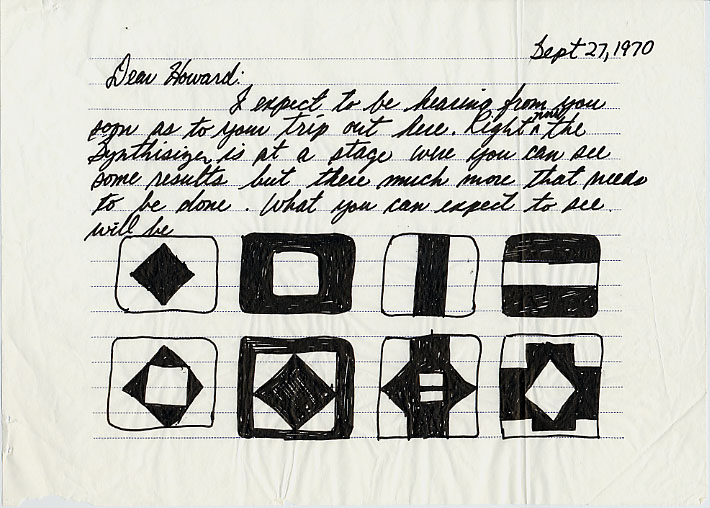 Sept 27, 1970
Dear Howard:
I expect to be hearing from you
soon as to your trip out here. Right now the
Synthisizer is at a stage were you can see
some results but there much more that needs
to be done. What you can expect to see
will be